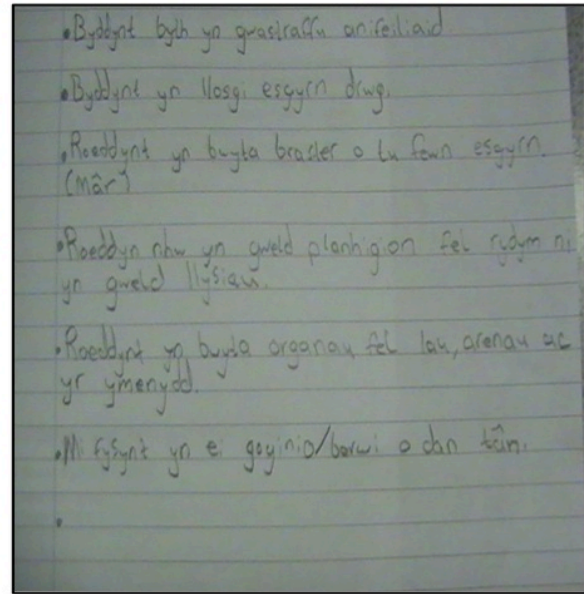 •Byddynt byth yn gwastraffu anifeiliaid.
•Byddynt yn llosgi esgyrn drwg.
•Roeddynt yn bwyta braster o tu fewn esgyrn.
(mâr)
•Roeddyn nhw yn gweld planhigion fel rydym ni
yn gweld llysiau.
•Roeddynt yn bwyta organau fel Iau, arenau ac
yr ymenydd.
•Mi fysynt yn ei /berwi o dan tân.
•